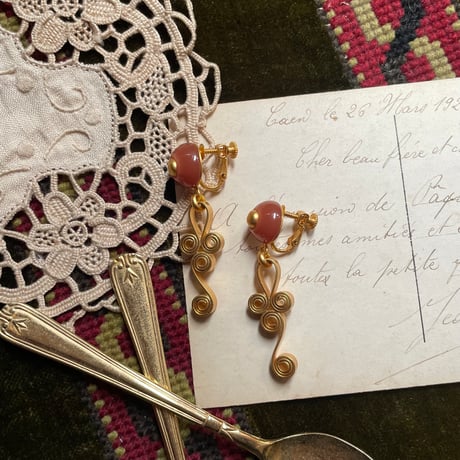 Caen le 26 Mars 192
Cher beau frère et
A l'occasion de Paq
amitiés et
toute la petite